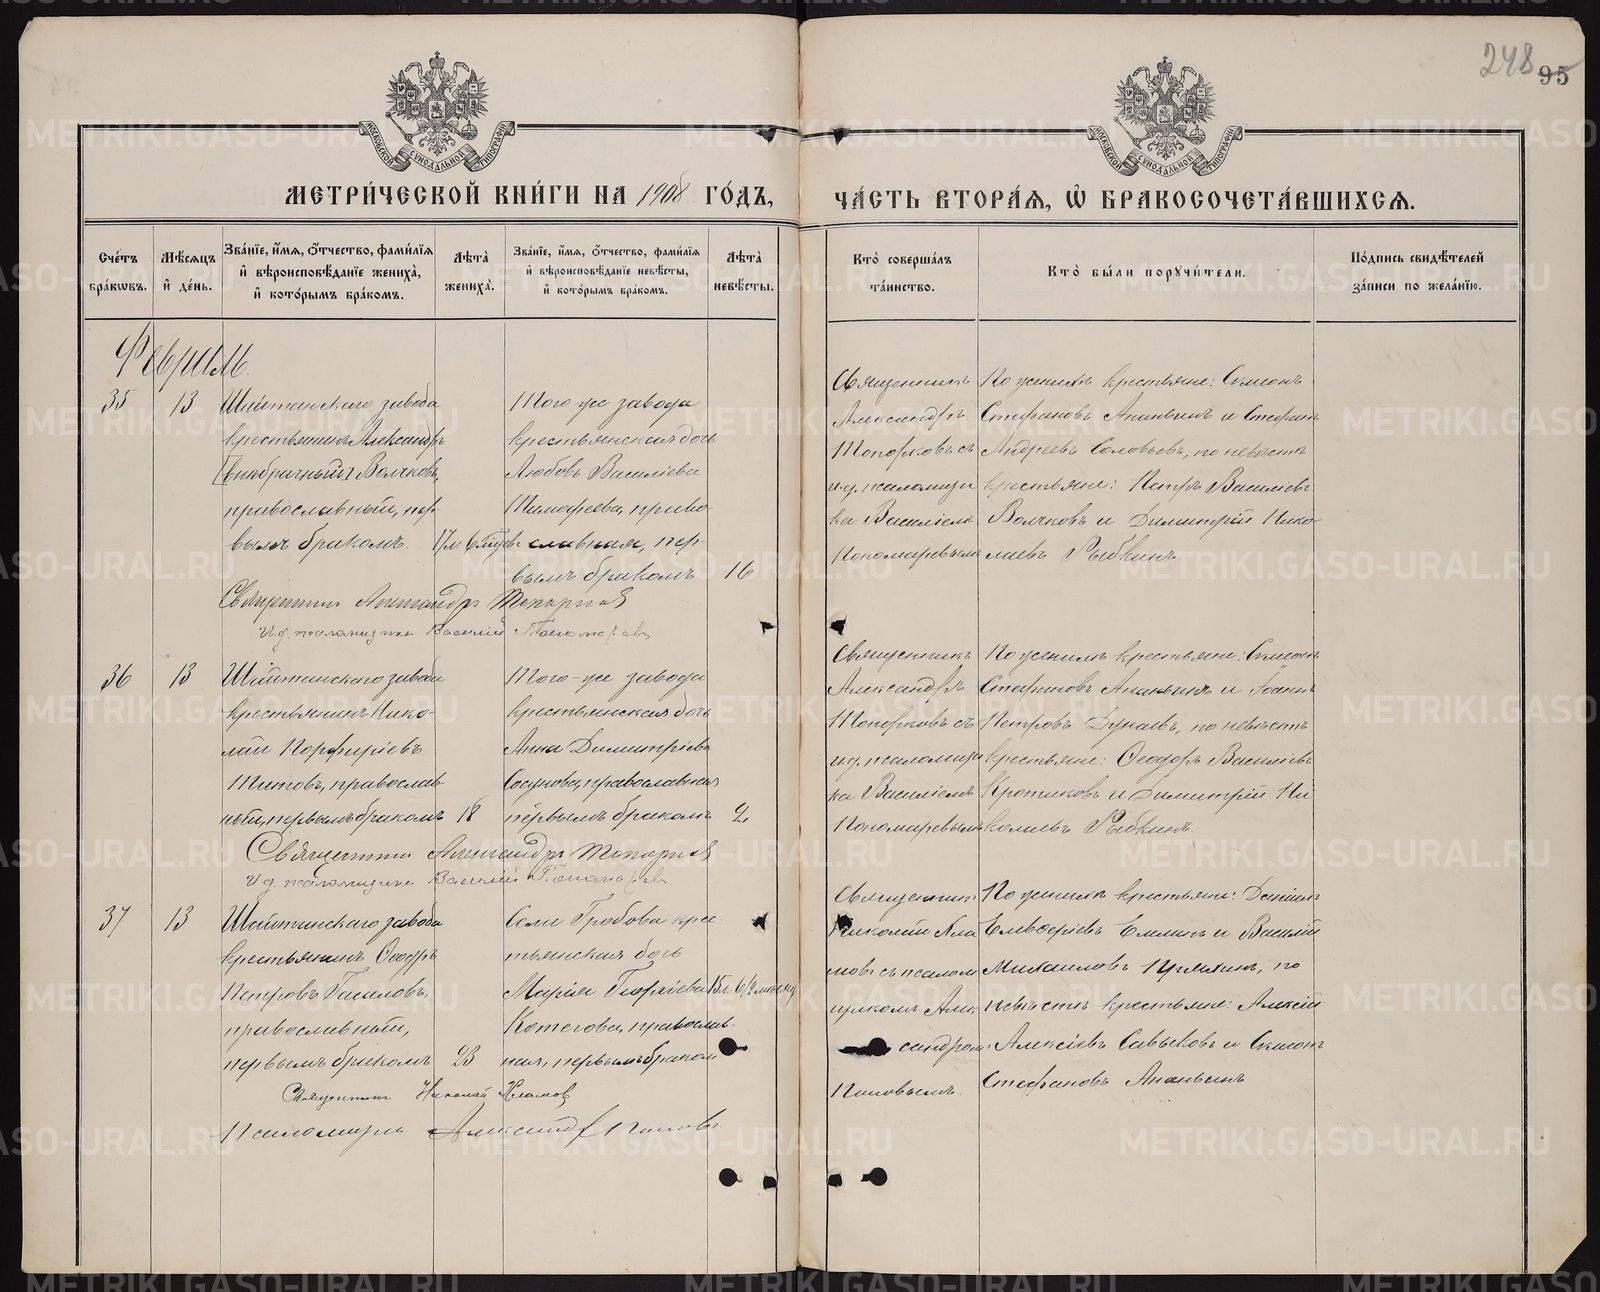 248 95
МОСКОВСКОЙ СѴНОДАЛЬНОЙ ТИПОГРАФІИ
МОСКОВСКОЙ СѴНОДАЛЬНОЙ ТИПОГРАФІИ
МЕТРИ́ЧЕСКОЙ КНИ́ГИ НА 1908 ГО́ДЪ,
ЧА́СТЬ ВТОРА́Ѧ, Ѽ БРАКОСОЧЕТА́ВШИХСѦ.
Сче́тъ бра́кѡвъ.
Мѣ́сѧцъ и҆ де́нь.
Зва́нїе, и҆́мѧ, ѻ҆́тчество, фами́лїѧ и҆ вѣроисповѣ́данїе жениха̀, и҆ кото́рымъ бра́комъ.
Лѣ́та жениха̀.
Зва́нїе, и҆́мѧ, ѻ҆́тчество, фами́лїѧ и҆ вѣроисповѣ́данїе невѣ́сты, и҆ кото́рымъ бра́комъ.
Лѣ́та невѣ́сты.
Кто̀ соверша́лъ та́инство.
Кто̀ бы́ли порꙋчи́тели.
По́дпись свидѣ́телей за́писи по жела́нїю.
Февраль.
35 13
Шайтанскаго завода
крестьянинъ Александръ
(внибрачный) Волчковъ,
православный, пер
вымъ бракомъ.
17 л. 6
Того-же завода
крестьянская дочь
Любовь Василіева
Тимофеева, право
славная, пер-
вымъ бракомъ 16
Священникъ
Александръ
Топорковъ съ
и.д. псаломщи
ка Василіемъ
Пономаревымъ
По женихѣ крестьяне: Симеонъ
Стефановъ Ананьинъ и Стефанъ
Андреевъ Соловьевъ, по невѣстѣ
крестьяне: Петръ Василіевъ
Волчковъ и Димитрій Нико-
лаевъ Рыбкинъ
Священникъ Александръ Топорковъ
И.д. псаломщика Василій Пономаревъ
36 13
Шайтанскаго завода
крестьянинъ Нико-
лай Порфиріевъ
Титовъ, православ
ный, первымъ бракомъ 18
Того-же завода
крестьянская дочь
Анна Димитріева
православная
первымъ бракомъ
Священникъ
Александръ
Топорковъ съ
и.д. псаломщи
ка Василіемъ
Пономаревымъ
По женихѣ крестьяне: Симеонъ
Стефановъ Ананьинъ и Іоаннъ
Петровъ Дунаевъ, по невѣстѣ
крестьяне: Ѳеодоръ Василіевъ
Кротиковъ и Димитрій Ни
колаевъ Рыбкинъ.
Священникъ Александръ Топорковъ
И.д. псаломщика Василій Пономаревъ
37 13
Шайтанскаго завода
крестьянинъ Ѳеодоръ
Петровъ
православный,
первымъ бракомъ 23
Села Гробова крес
тьянская дочь
Марія Георгіева
Котегова, православ-
ная, первымъ бракомъ
Священникъ
Николай
съ псалом
щикомъ Алек
сандромъ
Поповымъ.
По женихѣ крестьяне: Даніилъ
Елинъ и Василій
Михаиловъ по
невѣстѣ крестьяне: Алексій
Алексіевъ и Симеонъ
Стефановъ Ананьинъ
Священникъ Николай
Псаломщикъ Александръ Поповъ
METRIKI.GASO-URAL.RU